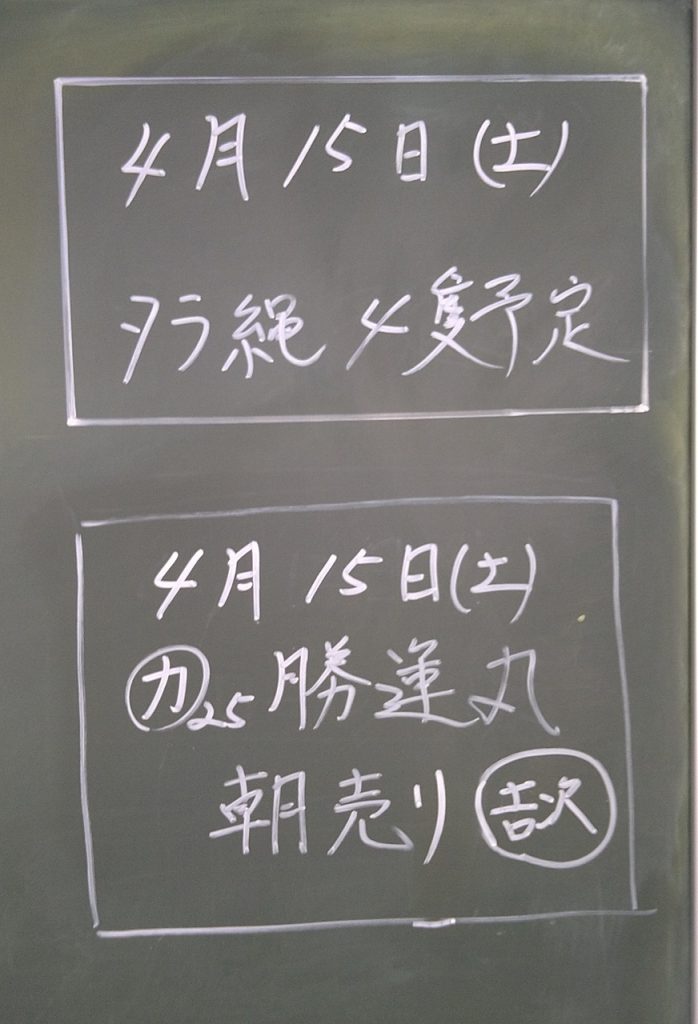 4月15日(土)
タラ縄 4隻予定
4月15日(土)
カ25勝運丸
朝売り 吉次